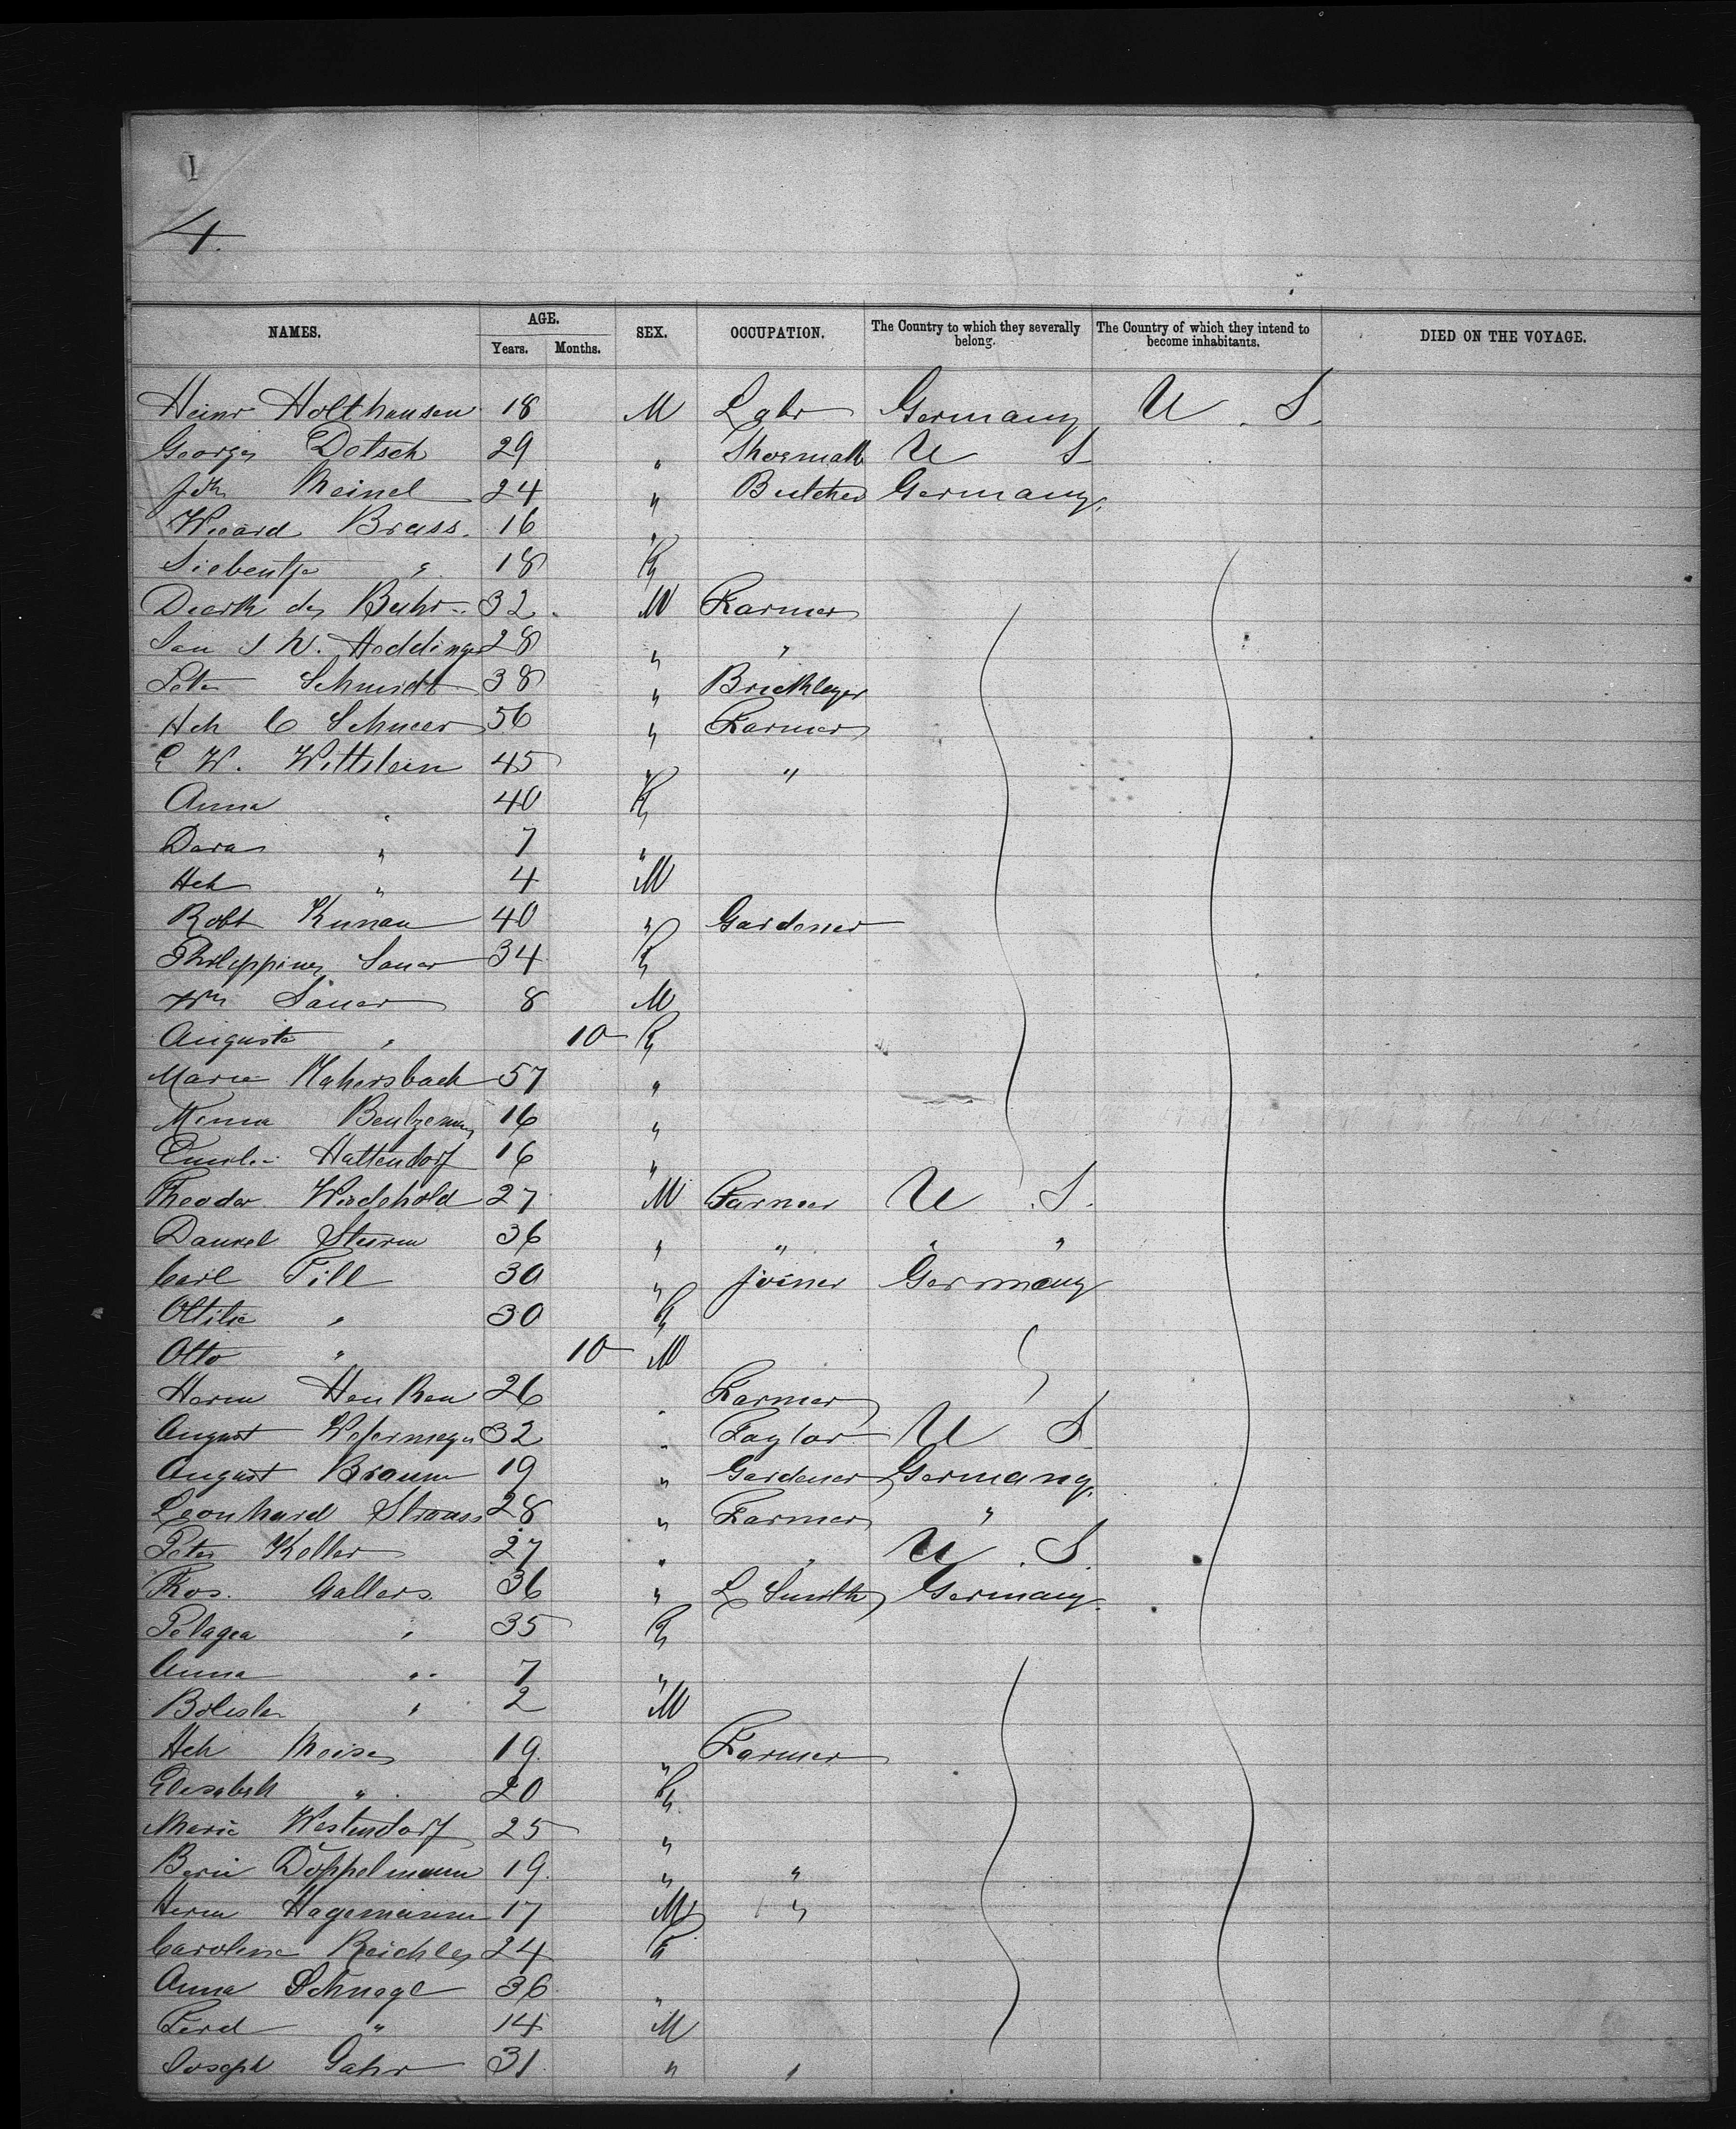 I
4.
NAMES. AGE. SEX. OCCUPATION. The Country to which they severally belong. The Country of which they intend to become inhabitants. DIED ON THE VOYAGE.
Years. Months.
Heinr Holthausen 18 M Labr Germany U. S.
George Dotsch 29 " Shoemak U S
Joh Meinel 24 " Butcher Germany.
Wiard Bruss. 16 "
Siebentje " 18 F
Dierk de Buhr 32. M Farmer
Jan J W. Heddinga 28 " "
Peter Schmidt 38 " Bricklayer
Hch C Schneer 56 " Farmer
E W. Wittstein 45 " "
Anna " 40 F
Dora " 7 "
Hch " 4 M
Robt Kunau 40 " Gardener
Philippine Sauer 34 F
Wm Sauer 8 M
Auguste " 10 F
Marie Hahersbach 57 "
Minna 16 "
Emilie Hattendorf 16 "
Theodor Wiedehold 27 M Farmer U. S.
Daniel Sturm 36 " " " "
Carl Till 30 " Joiner Germany
Ottilie " 30 F
Otto " 10 M
Herm Henken 26 " Farmer
August Wefermeyer 32 " Taylor U S
August Braum 19 " Gardener Germany.
Leonhard Strauss 28 " Farmer "
Peter Keller 27 " " U. S.
Gallers 36 " L Smith Germany.
Pelagea " 35 F
Anna " 7 "
" 2 M
Hch Meise 19. " Farmer
Elisabeth " 20 F
Marie Westendorf 25 "
Döppelmann 19. " "
Herm Hagemann 17 M "
Caroline Reichle 24 F
Anna Schnagl 36 "
Ferd " 14 M
Joseph Gahr 31 " "